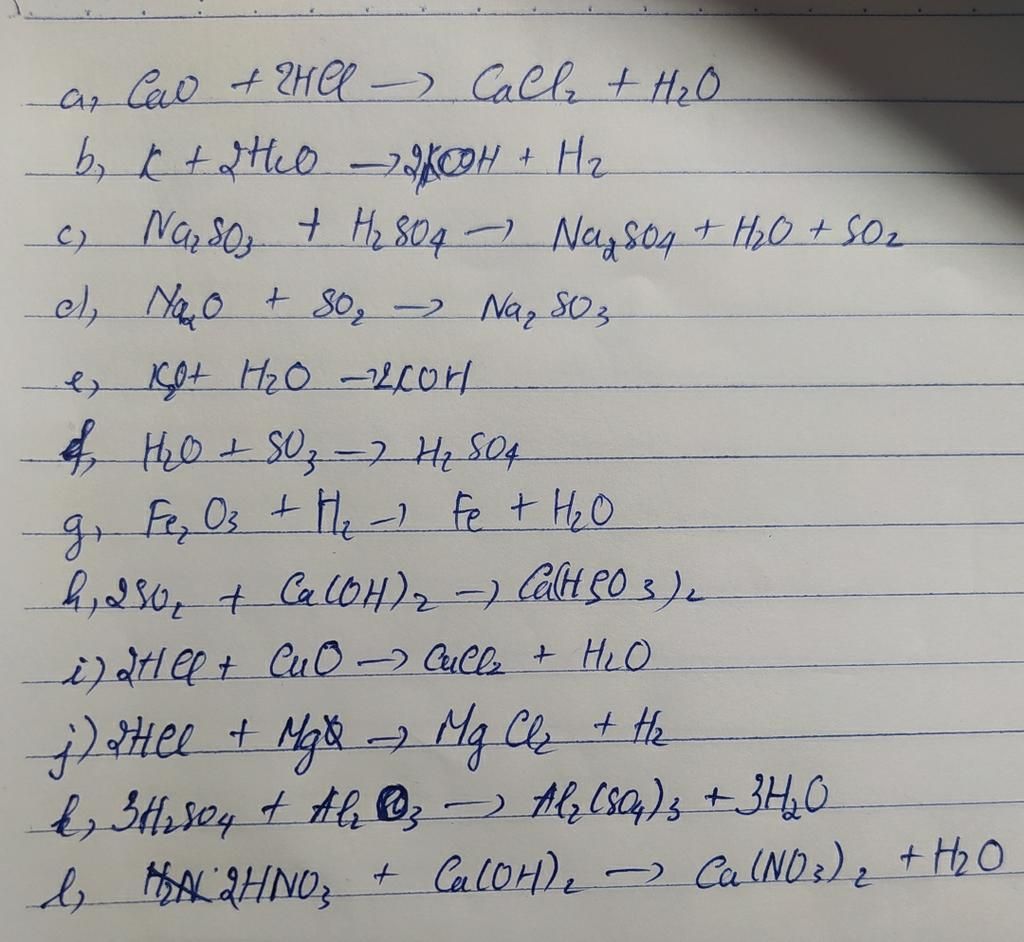 a, CaO + 2HCl → CaCl₂ + H₂O
b, K + 2H₂O → 2KOH + H₂
c) Na₂SO₃ + H₂SO₄ → Na₂SO₄ + H₂O + SO₂
d, Na₂O + SO₂ → Na₂SO₃
e, K₂O + H₂O → 2KOH
f, H₂O + SO₃ → H₂SO₄
g, Fe₂O₃ + H₂ → Fe + H₂O
h, 2SO₂ + Ca(OH)₂ → Ca(HSO₃)₂
i) 2HCl + CuO → CuCl₂ + H₂O
j) 2HCl + Mg → MgCl₂ + H₂
k, 3H₂SO₄ + Al₂O₃ → Al₂(SO₄)₃ + 3H₂O
l, 2HNO₃ + Ca(OH)₂ → Ca(NO₃)₂ + H₂O